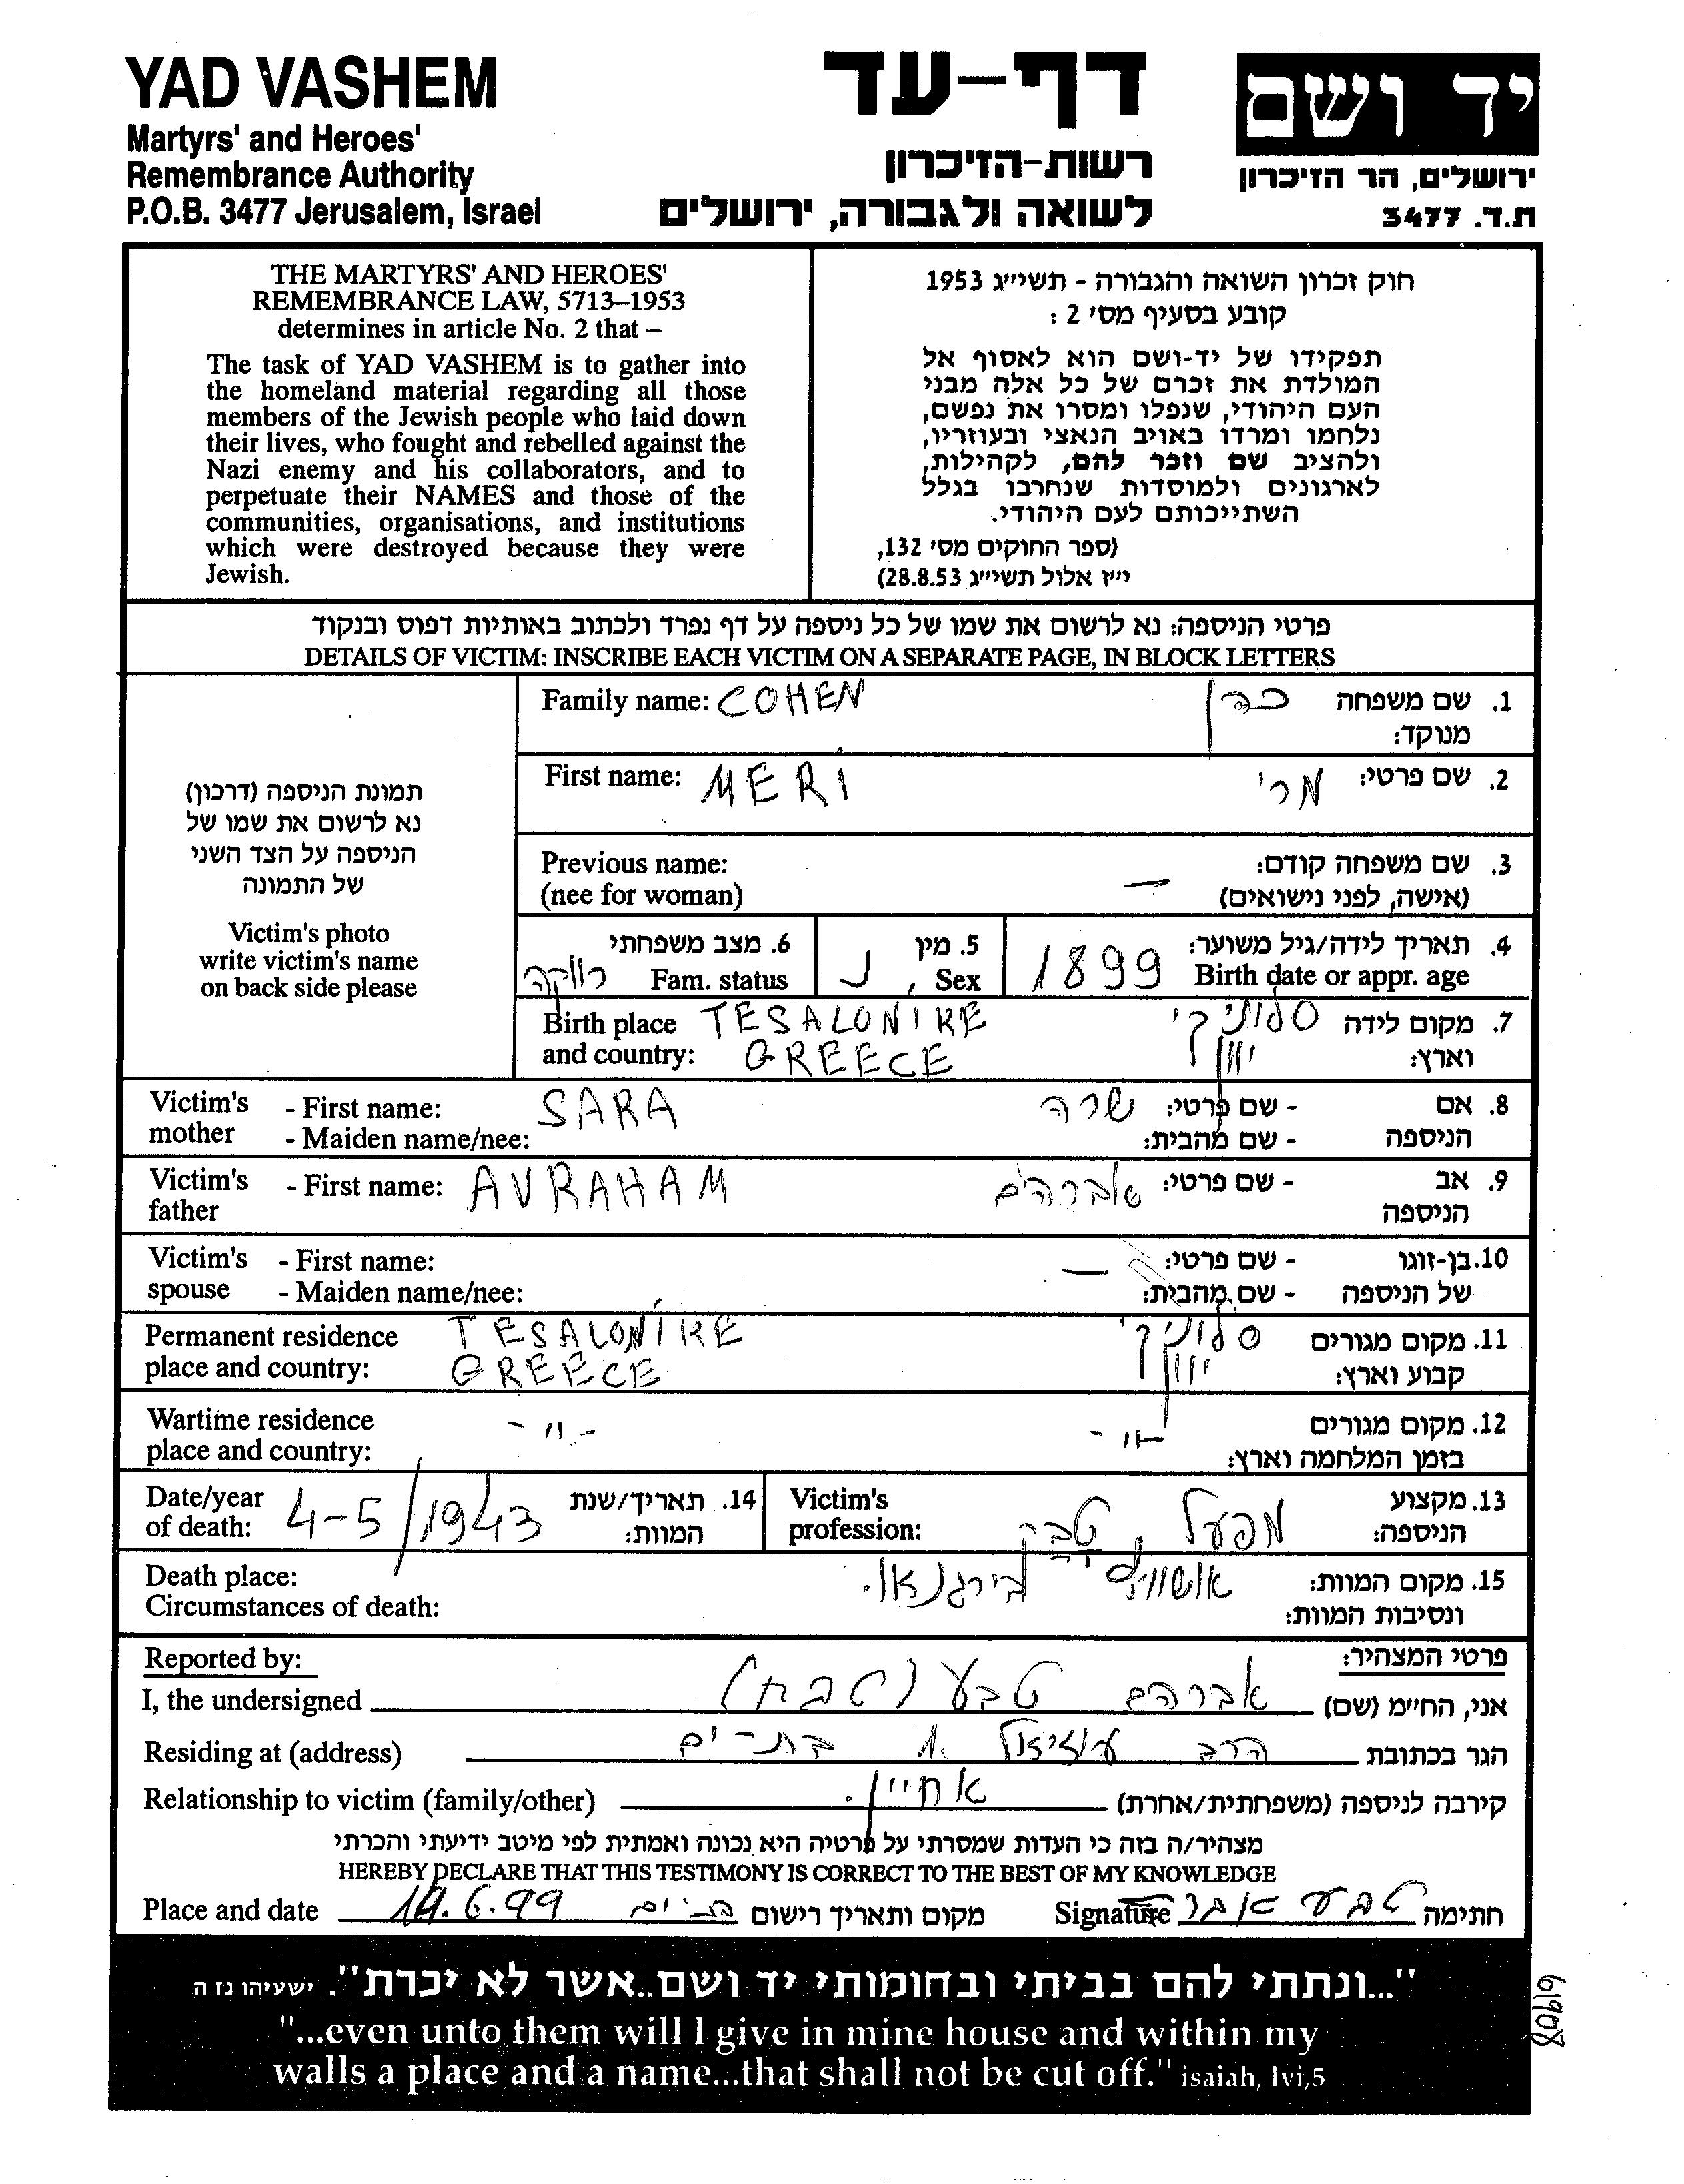 YAD VASHEM
Martyrs' and Heroes'
Remembrance Authority
P.O.B. 3477 Jerusalem, Israel
דף-עד
רשות-הזיכרון
לשואה ולגבורה, ירושלים
יד ושם
ירושלים, הר הזיכרון
ת.ד. 3477
THE MARTYRS' AND HEROES'
REMEMBRANCE LAW, 5713–1953
determines in article No. 2 that –
The task of YAD VASHEM is to gather into
the homeland material regarding all those
members of the Jewish people who laid down
their lives, who fought and rebelled against the
Nazi enemy and his collaborators, and to
perpetuate their NAMES and those of the
communities, organisations, and institutions
which were destroyed because they were
Jewish.
חוק זכרון השואה והגבורה - תשי״ג 1953
קובע בסעיף מס׳ 2 :
תפקידו של יד-ושם הוא לאסוף אל
המולדת את זכרם של כל אלה מבני
העם היהודי, שנפלו ומסרו את נפשם,
נלחמו ומרדו באויב הנאצי ובעוזריו,
ולהציב שם וזכר להם, לקהילות,
לארגונים ולמוסדות שנחרבו בגלל
השתייכותם לעם היהודי.
(ספר החוקים מס׳ 132,
י״ז אלול תשי״ג 28.8.53)
פרטי הניספה: נא לרשום את שמו של כל ניספה על דף נפרד ולכתוב באותיות דפוס ובנקוד
DETAILS OF VICTIM: INSCRIBE EACH VICTIM ON A SEPARATE PAGE, IN BLOCK LETTERS
תמונת הניספה (דרכון)
נא לרשום את שמו של
הניספה על הצד השני
של התמונה
Victim's photo
write victim's name
on back side please
Family name: COHEN כהן 1. שם משפחה
מנוקד:
First name: MERI מרי 2. שם פרטי:
Previous name: 3. שם משפחה קודם:
(nee for woman) — (אישה, לפני נישואים)
6. מצב משפחתי 5. מין 4. תאריך לידה/גיל משוער:
רווקה Fam. status נ Sex 1899 Birth date or appr. age
Birth place TESALONIKE סלוניקי 7. מקום לידה
and country: GREECE יוון וארץ:
Victim's - First name: SARA שרה - שם פרטי: 8. אם
mother - Maiden name/nee: - שם מהבית: הניספה
Victim's - First name: AVRAHAM אברהם - שם פרטי: 9. אב
father הניספה
Victim's - First name: — - שם פרטי: 10. בן-זוגו
spouse - Maiden name/nee: - שם מהבית: של הניספה
Permanent residence TESALONIKE סלוניקי 11. מקום מגורים
place and country: GREECE יוון קבוע וארץ:
Wartime residence - 11 - - 11 - 12. מקום מגורים
place and country: בזמן המלחמה וארץ:
Date/year 4-5/1943 14. תאריך/שנת Victim's מפעל טבק 13. מקצוע
of death: המוות: profession: הניספה:
Death place: אושוויץ בירקנאו. 15. מקום המוות:
Circumstances of death: ונסיבות המוות:
Reported by: פרטי המצהיר:
I, the undersigned אברהם טבע (טבח) אני, החי״מ (שם)
Residing at (address) הרב עוזיאל בת-ים הגר בכתובת
Relationship to victim (family/other) אחיין. קירבה לניספה (משפחתית/אחרת)
מצהיר/ה בזה כי העדות שמסרתי על פרטיה היא נכונה ואמתית לפי מיטב ידיעתי והכרתי
HEREBY DECLARE THAT THIS TESTIMONY IS CORRECT TO THE BEST OF MY KNOWLEDGE
Place and date 14.6.99 בת-ים מקום ותאריך רישום Signature טבע אבר חתימה
"...ונתתי להם בביתי ובחומותי יד ושם..אשר לא יכרת". ישעיהו נז ה
"...even unto them will I give in mine house and within my
walls a place and a name...that shall not be cut off." isaiah, lvi,5
61908